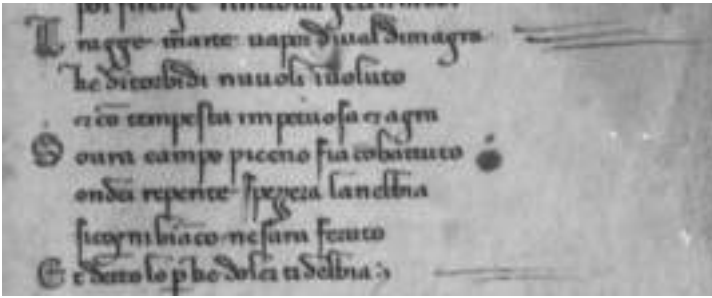 Tragge marte uapor diual dimagra
he ditorbidi nuuoli inuoluto
et cō tempesta impetuosa et agra
Soura campo piceno fia cōbattuto
ondei repente spezera lanebbia
sicogni biāco ne sara feruto
E detto lo p̄ he doler ti debbia